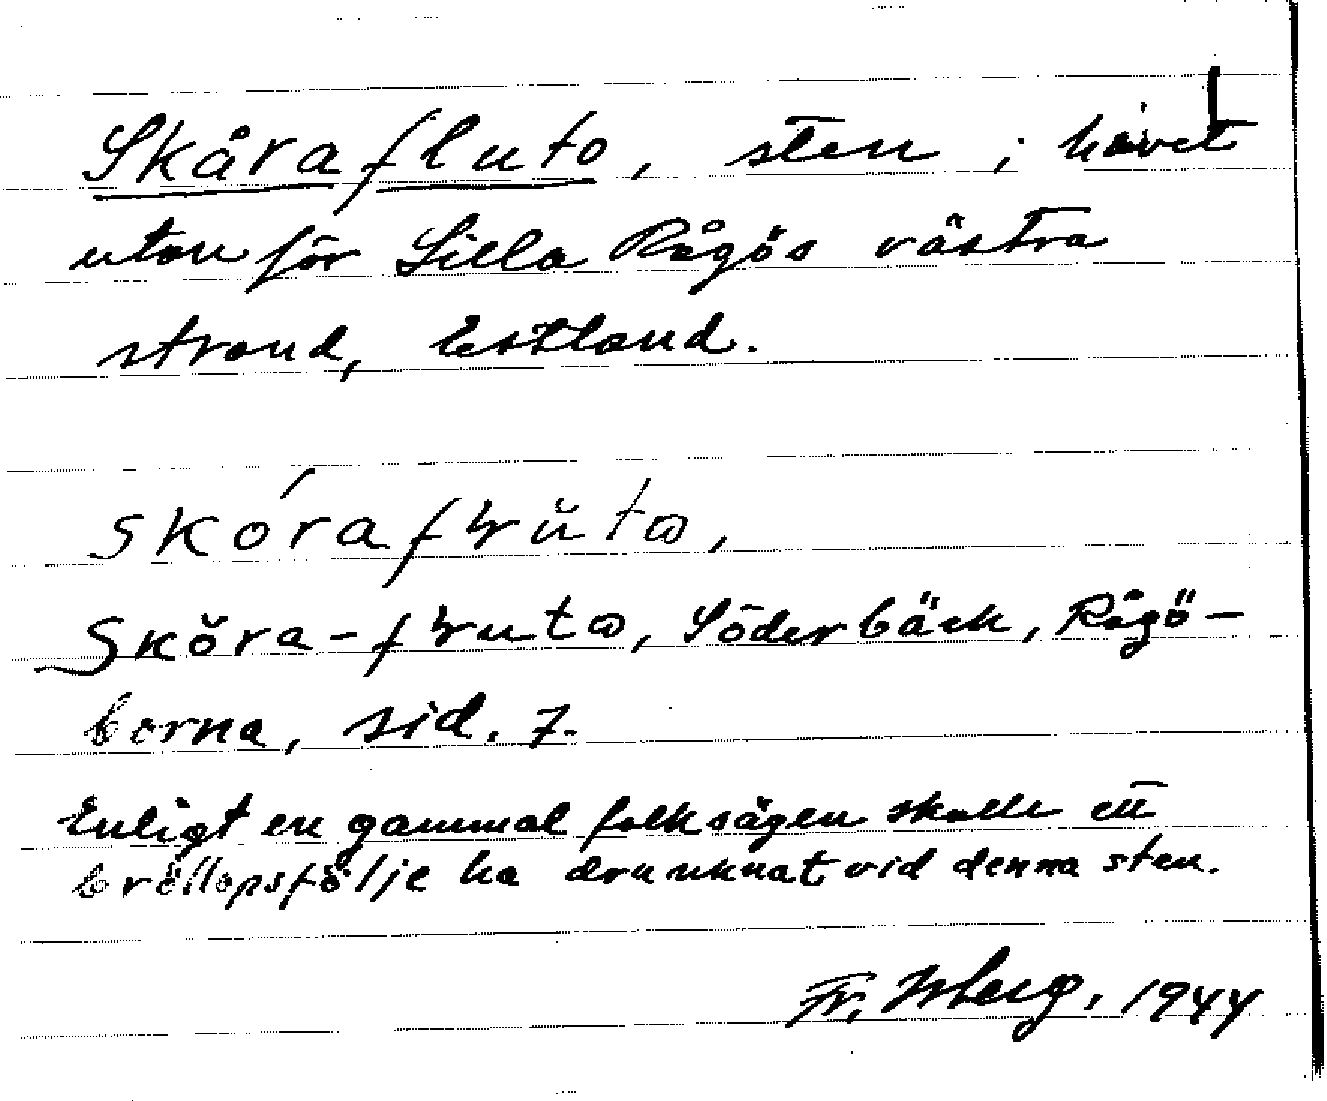 Skårafluto, sten i havet
utanför Lilla Rågös västra
strand, Estland.
skórafꞎŭtω,
Skŏra-fꞎutω, Söderbäck, Rågö-
borna, sid. 7.
Enligt en gammal folksägen skulle ett
bröllopsfölje ha drunknat vid denna sten.
Fr. Isberg, 1944